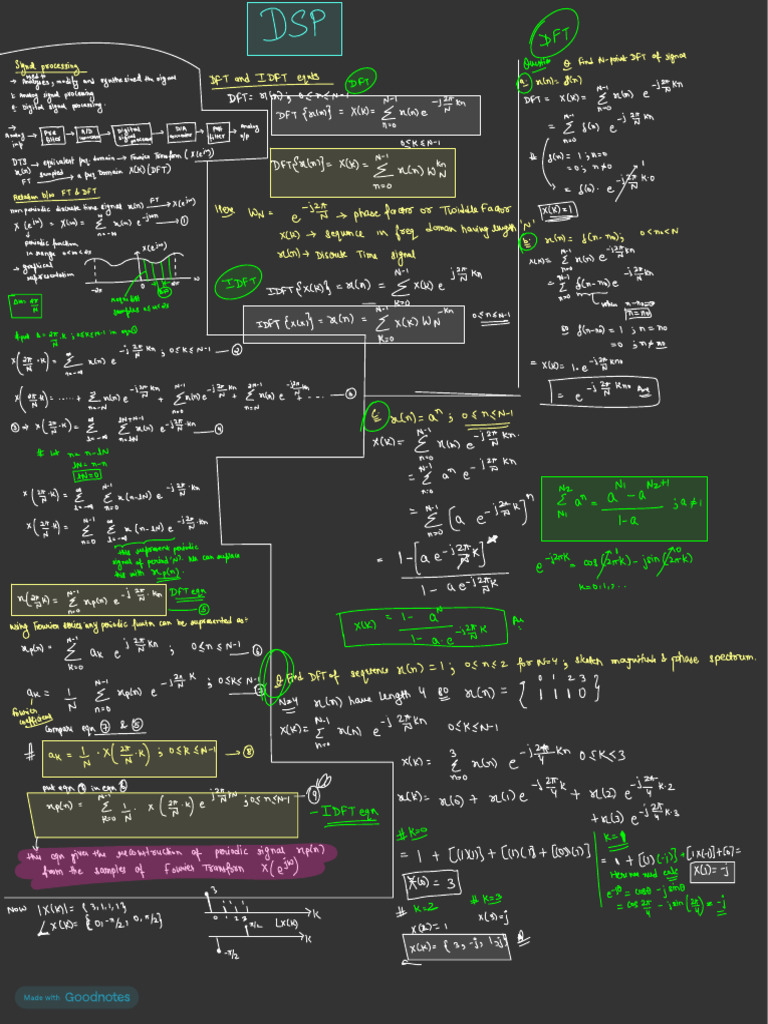 DSP
Signal processing
→ used to Analyses, modify and synthesized the signal
1. Analog signal processing
2. Digital signal processing
→ Analog inp → Pre filter → A/D converter → Digital signal processor → D/A converter → Post filter → Analog o/p
DTS → equivalent freq. domain → Fourier Transform (X(e^jω))
x(n)
FT sampled → a freq Domain X(K) (DFT)
Relation b/w FT & DFT
non periodic discrete time signal x(n) FT → X(e^jω)
X(e^jω) = X(ω) = ∑_{n=-∞}^{∞} x(n) e^{-jωn} — ①
↓
periodic function
in range
→ graphical representation
X(e^jω)
-2π 0 2π ω
# put ω = 2π/N·k ; 0≤k≤N-1 in eqn ①
X(2π/N·k) = ∑_{n=-∞}^{∞} x(n) e^{-j2π/N kn} ; 0≤k≤N-1 — ②
X(2π/N·k) = ..... + ∑_{n=-N}^{-1} x(n) e^{-j2π/N kn} + ∑_{n=0}^{N-1} x(n) e^{-j2π/N kn} + ∑_{n=N}^{2N-1} x(n) e^{-j2π/N kn} + .... — ③
③ ⇒ X(2π/N·k) = ∑ ∑ x(n) e^{-j2π/N kn} — ④
# let n = n-lN
lN = n-n
lN = 0
X(2π/N·k) = ∑ ∑ x(n-lN) e^{-j2π/N·kn}
X(2π/N·k) = ∑_{n=0}^{N-1} ∑_{l=-∞}^{∞} x(n-lN) e^{-j2π/N·kn}
this represent periodic
signal of period 'N'. We can replace
this with xp(n).
X(2π/N k) = ∑_{n=0}^{N-1} xp(n) e^{-j2π/N kn}
DFT eqn — ⑤
Using Fourier series any periodic funtn can be represented as:
xp(n) = ∑_{k=0}^{N-1} ak e^{j2π/N kn} ; 0≤n≤N-1 — ⑥
ak = 1/N ∑_{n=0}^{N-1} xp(n) e^{-j2π/N k} ; 0≤k≤N-1 — ⑦
Fourier coefficient
Compare eqn ⑦ & ⑤
# ak = 1/N · X(2π/N·k) ; 0≤k≤N-1 — ⑧
put eqn ⑧ in eqn ⑥
xp(n) = ∑_{k=0}^{N-1} 1/N · X(2π/N·k) e^{j2π/N kn} ; 0≤n≤N-1 — ⑨
- IDFT eqn
this eqn gives the reconstruction of periodic signal xp(n)
from the samples of Fourier Transform X(e^jω)
DFT and IDFT eqnts
DFT
DFT = x(n) ; 0≤n≤N-1
DFT{x(n)} = X(K) = ∑_{n=0}^{N-1} x(n) e^{-j2π/N kn}
0≤K≤N-1
DFT{x(n)} = X(K) = ∑_{n=0}^{N-1} x(n) W_N^{kn}
Here W_N = e^{-j2π/N} → phase factor or Twiddle Factor
X(K) → sequence in freq domain having length 'N'.
x(n) → Discrete Time signal
IDFT
IDFT{X(K)} = x(n) = ∑_{K=0}^{N-1} X(K) e^{j2π/N kn}
IDFT{X(K)} = x(n) = ∑_{K=0}^{N-1} X(K) W_N^{-kn}
0≤n≤N-1
DFT
Question Q Find N-point DFT of signal
a: x(n) = δ(n)
DFT = X(K) = ∑_{n=0}^{N-1} x(n) e^{-j2π/N kn}
= ∑_{n=0}^{N-1} δ(n) e^{-j2π/N kn}
δ(n) = 1 ; n=0
= 0 ; n≠0
= δ(0) · e^{-j2π/N k·0}
X(K) = 1
b: x(n) = δ(n-n0) ; 0<n0<N
X(K) = ∑_{n=0}^{N-1} x(n) e^{-j2π/N kn}
= ∑_{n=0}^{N-1} δ(n-n0) e^{-j2π/N kn}
when n-n0=0
n=n0
so δ(n-n0) = 1 ; n=n0
= 0 ; n≠n0
= X(K) = 1·e^{-j2π/N kn0}
= e^{-j2π/N kn0} Ans
c x(n) = a^n ; 0≤n≤N-1
X(K) = ∑_{n=0}^{N-1} x(n) e^{-j2π/N kn}
= ∑_{n=0}^{N-1} a^n e^{-j2π/N kn}
= ∑_{n=0}^{N-1} [a e^{-j2π/N k}]^n
= 1-[a e^{-j2π/N k}]^N / 1-a e^{-j2π/N k}
X(K) = 1-a^N / 1-a·e^{-j2π/N k}
∑_{N1}^{N2} a^n = a^{N1} - a^{N2+1} / 1-a ; a≠1
e^{-j2πk} = cos(2πk) - j sin(2πk)
k=0,1,..
Q Find DFT of sequence x(n) = 1 ; 0≤n≤2 for N=4 ; sketch magnitude & phase spectrum.
N=4 x(n) have length 4 so x(n) = {1 1 1 0}
0 1 2 3
X(K) = ∑_{n=0}^{N-1} x(n) e^{-j2π/N kn} 0≤K≤N-1
X(K) = ∑_{n=0}^{3} x(n) e^{-j2π/4 kn} 0≤K≤3
X(K) = x(0) + x(1) e^{-j2π/4 k} + x(2) e^{-j2π/4 k·2}
+ x(3) e^{-j2π/4 k·3}
# k=0
= 1 + [(1)(1)] + [(1)(1)] + [(0)(1)]
X(0) = 3
k=1
= 1 + [(1)(-j)] + [1×(-1)] + [0] =
X(1) = -j
e^{-jθ} = cosθ - j sinθ
= cos 2π/4 - j sin(2π/4) = -j
# k=2
X(2) = 1
# k=3
X(3) = j
X(K) = {3, -j, 1, j}
Now |X(K)| = {3, 1, 1, 1}
∠X(K) = {0, -π/2, 0, π/2}
3
0 1 2 3 K
∠X(K)
π/2
K
-π/2
Made with Goodnotes